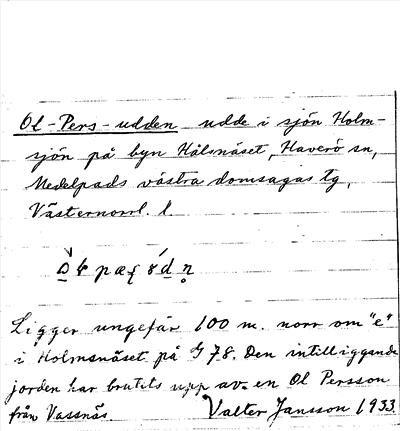 Ol-Pers-udden udde i sjön Holm-
sjön på byn Hålsnäset, Haverö sn,
Medelpads västra domsagas tg,
Västernorrl. l.
Ligger ungefär 100 m. norr om "e"
i Holmsnäset på G 78. Den intilliggande
jorden har brutits upp av en Ol Persson
från Vassnäs. Valter Jansson 1933.